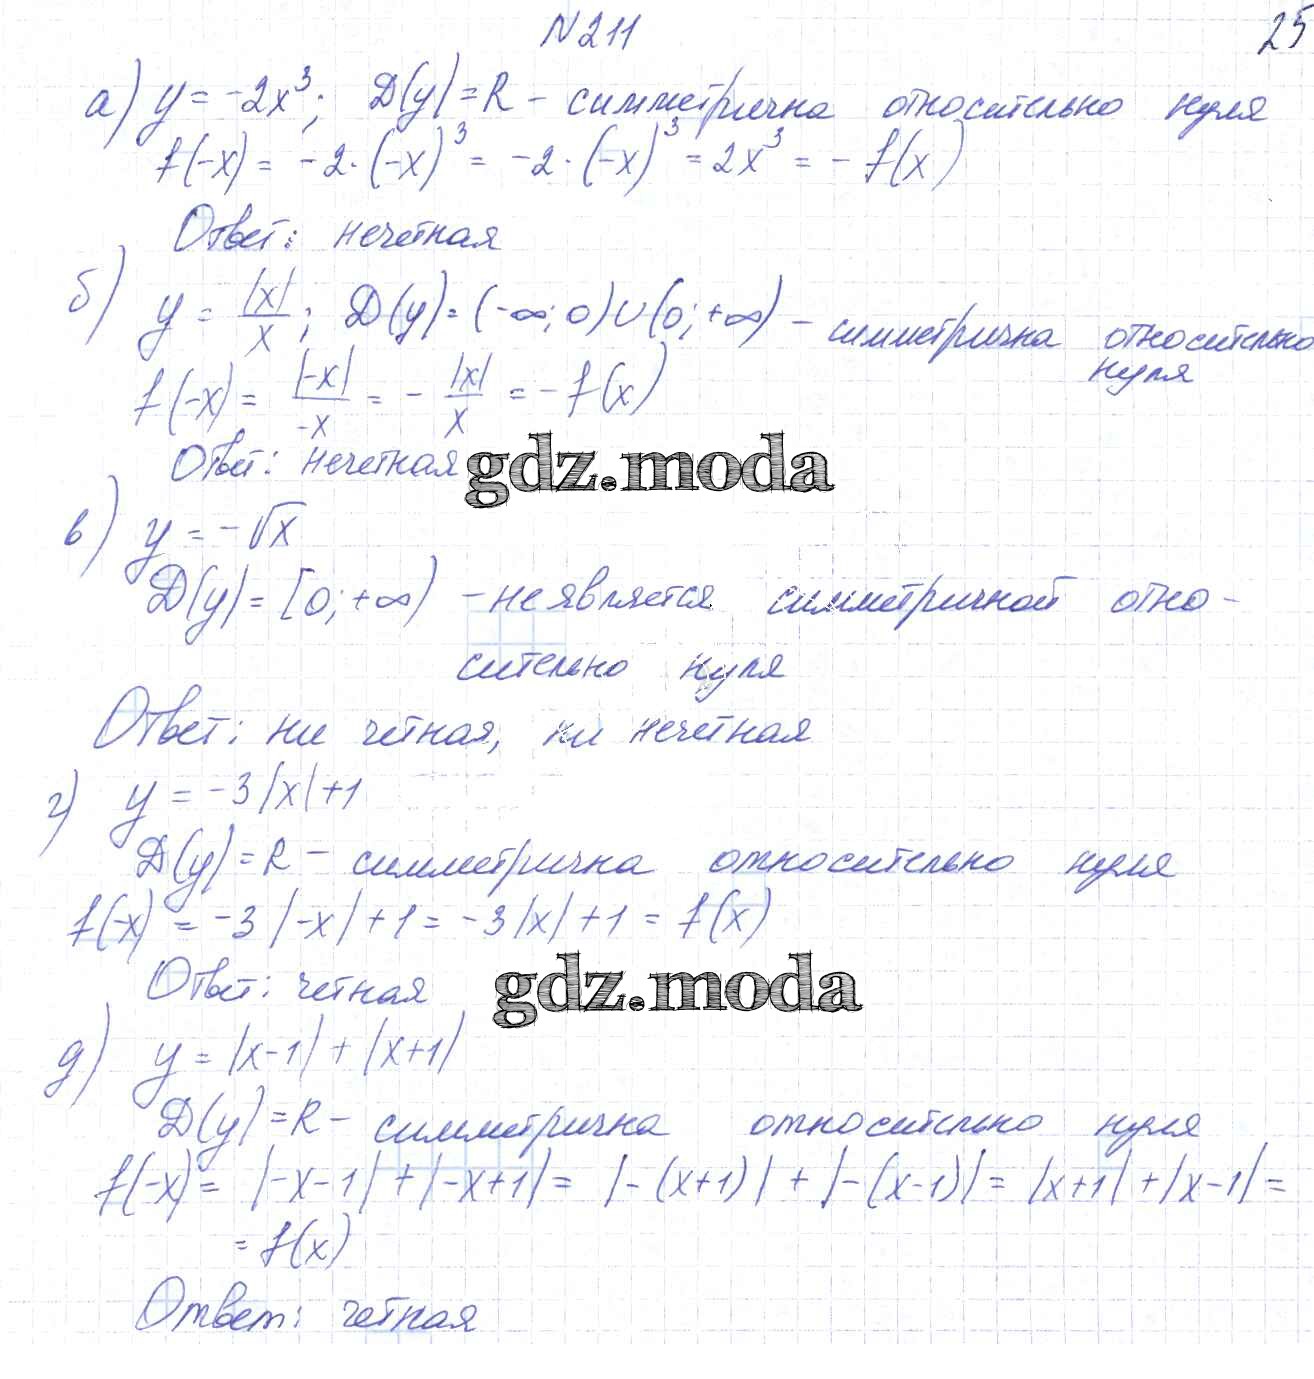 N211
25
а) y = -2x³; D(y) = R - симметрична относительно нуля
f(-x) = -2·(-x)³ = -2·(-x)³ = 2x³ = - f(x)
Ответ: нечетная
б) y = |x|/x; D(y) = (-∞; 0)∪(0; +∞) - симметрична относительно
нуля
f(-x) = |-x|/-x = - |x|/x = - f(x)
Ответ: нечетная
gdz.moda
в) y = -√x
D(y) = [0; +∞) - не является симметричной отно-
сительно нуля
Ответ: ни четная, ни нечетная
г) y = -3|x|+1
D(y) = R - симметрична относительно нуля
f(-x) = -3|-x|+1 = -3|x|+1 = f(x)
Ответ: четная
gdz.moda
д) y = |x-1| + |x+1|
D(y) = R - симметрична относительно нуля
f(-x) = |-x-1| + |-x+1| = |-(x+1)| + |-(x-1)| = |x+1| + |x-1| =
= f(x)
Ответ: четная